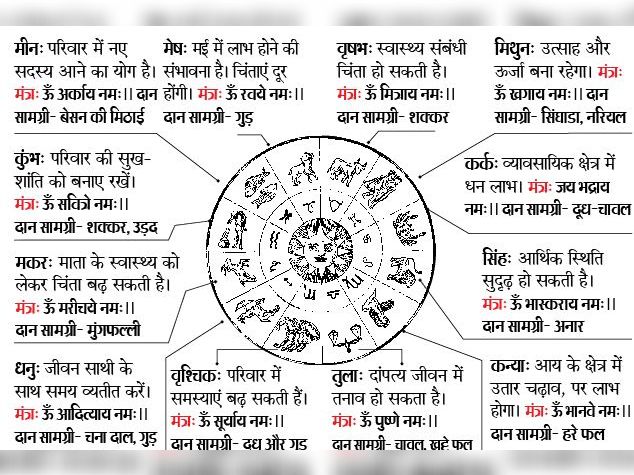 मीनः परिवार में नए
सदस्य आने का योग है।
मंत्रः ॐ अर्काय नमः।। दान
सामग्री- बेसन की मिठाई
मेषः मई में लाभ होने की
संभावना है। चिंताएं दूर
होंगी। मंत्रः ॐ रवये नमः।।
दान सामग्री- गुड़
वृषभः स्वास्थ्य संबंधी
चिंता हो सकती है।
मंत्रः ॐ मित्राय नमः।।
दान सामग्री- शक्कर
मिथुनः उत्साह और
ऊर्जा बना रहेगा। मंत्रः
ॐ खगाय नमः।। दान
सामग्री- सिंघाडा, नरियल
कुंभः परिवार की सुख-
शांति को बनाए रखें।
मंत्रः ॐ सवित्रे नमः।।
दान सामग्री- शक्कर, उड़द
कर्कः व्यावसायिक क्षेत्र में
धन लाभ। मंत्रः जय भद्राय
नमः।। दान सामग्री- दूध-चावल
मकरः माता के स्वास्थ्य को
लेकर चिंता बढ़ सकती है।
मंत्रः ॐ मरीचये नमः।।
दान सामग्री- मुंगफल्ली
सिंहः आर्थिक स्थिति
सुदृढ़ हो सकती है।
मंत्रः ॐ भास्कराय नमः।।
दान सामग्री- अनार
धनुः जीवन साथी के
साथ समय व्यतीत करें।
मंत्रः ॐ आदित्याय नमः।।
दान सामग्री- चना दाल, गुड़
वृश्चिकः परिवार में
समस्याएं बढ़ सकती हैं।
मंत्रः ॐ सूर्याय नमः।।
दान सामग्री- दूध और गुड़
तुलाः दांपत्य जीवन में
तनाव हो सकता है।
मंत्रः ॐ पुष्णे नमः।।
दान सामग्री- चावल, खट्टे फल
कन्याः आय के क्षेत्र में
उतार चढ़ाव, पर लाभ
होगा। मंत्रः ॐ भानवे नमः।।
दान सामग्री- हरे फल